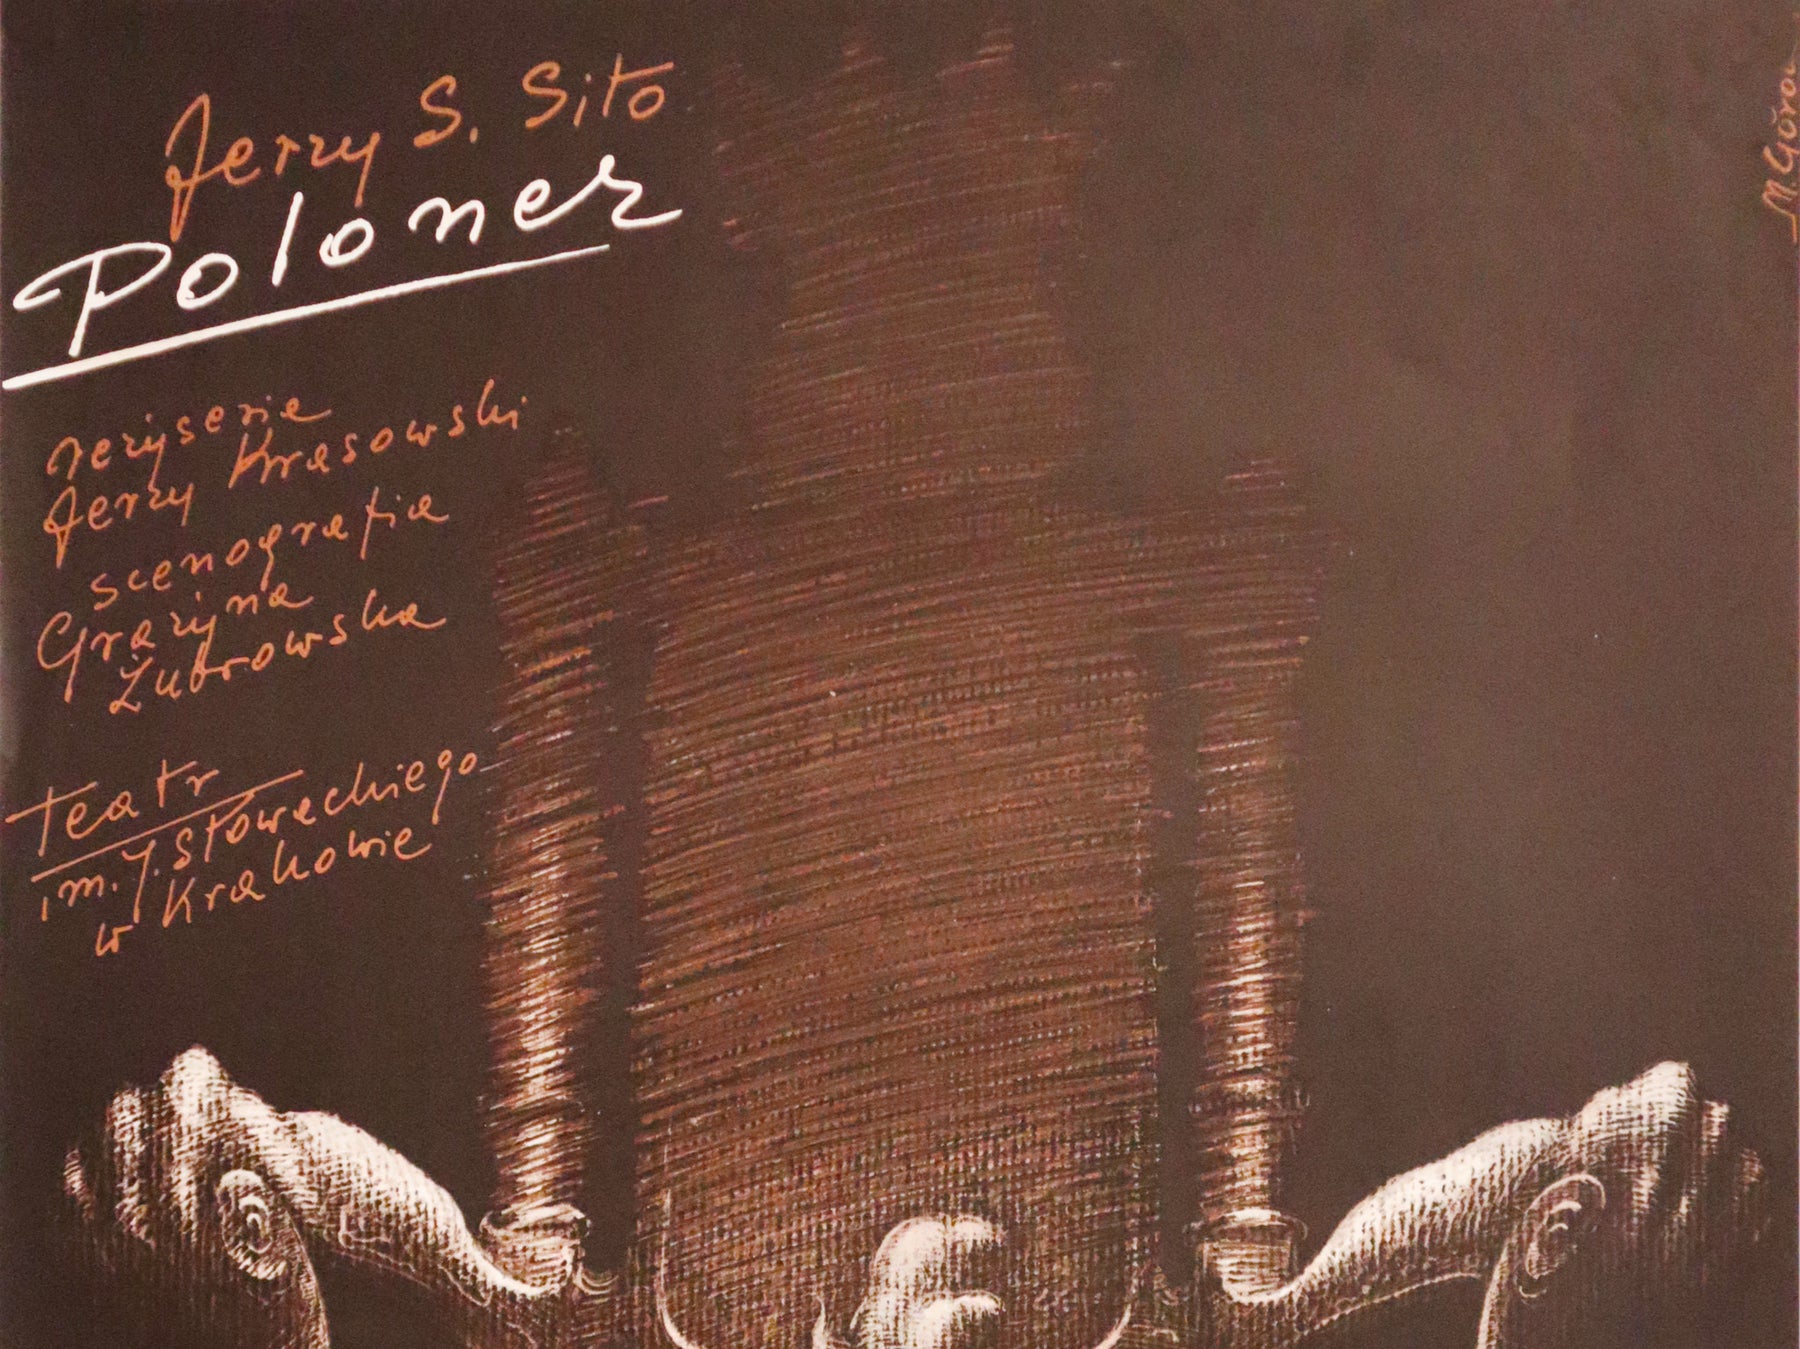 Jerzy S. Sito
Polonez
reżyseria
Jerzy Krasowski
scenografia
Grażyna
Żubrowska
teatr
im. J. Słowackiego
w Krakowie
M. Górow